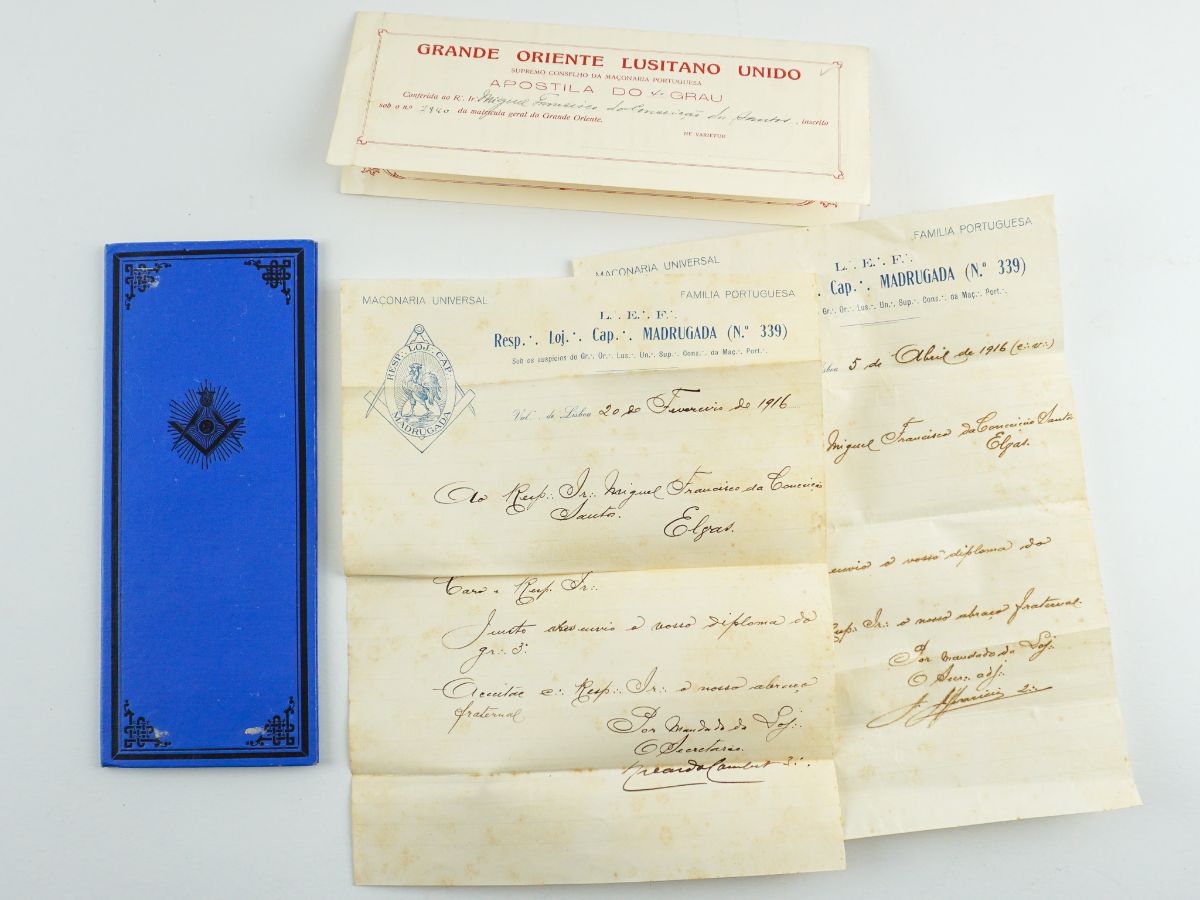 GRANDE ORIENTE LUSITANO UNIDO
SUPREMO CONSELHO DA MAÇONARIA PORTUGUESA
APOSTILA DO 4º GRAU
Conferida ao R∴ Ir∴ Miguel Francisco da Conceição dos Santos, inscrito
sob o n.º 7840 da matricula geral do Grande Oriente.
NE VARIETUR
MAÇONARIA UNIVERSAL
FAMILIA PORTUGUESA
L∴ E∴ F∴
Resp∴ Loj∴ Cap∴ MADRUGADA (N.º 339)
Sob os auspicios do Gr∴ Or∴ Lus∴ Un∴ Sup∴ Cons∴ da Maç∴ Port∴
RESP. LOJ. CAP.
MADRUGADA
Val∴ de Lisboa 20 de Fevereiro de 1916
Ao Resp∴ Ir∴ Miguel Francisco da Conceição
Santos.
Elvas.
Caro e Resp∴ Ir∴
Junto envio o vosso diploma do
gr∴ 3∴
Aceitae c∴ Resp∴ Ir∴ o nosso abraço
fraternal
Por Mandado da Loj∴
O Secretario
Ricardo 3∴
MAÇONARIA UNIVERSAL
FAMILIA PORTUGUESA
L∴ E∴ F∴
Cap∴ MADRUGADA (N.º 339)
Gr∴ Or∴ Lus∴ Un∴ Sup∴ Cons∴ da Maç∴ Port∴
5 de Abril de 1916 (e∴ v∴)
Miguel Francisco da Conceição Santos
Elvas.
envio o vosso diploma do
Resp∴ Ir∴ o nosso abraço fraternal.
Por Mandado da Loj∴
O adj∴